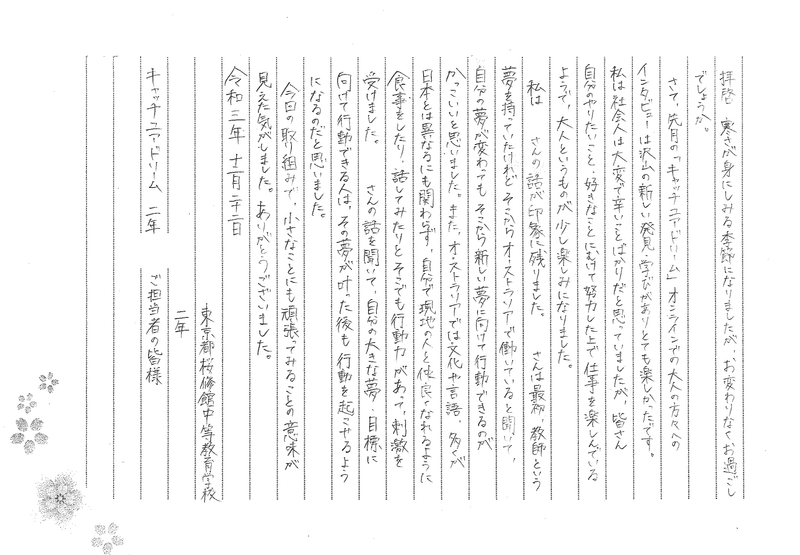 拝啓 寒さが身にしみる季節になりましたが、お変わりなくお過ごし
でしょうか。
さて、先月の「キャッチユアドリーム」オンラインでの大人の方々への
インタビューは沢山の新しい発見・学びがありとても楽しかったです。
私は社会人は大変で辛いことばかりだと思っていましたが、皆さん
自分のやりたいこと・好きなことにむけて努力した上で仕事を楽しんでいる
ようで、大人というものが少し楽しみになりました。
私は さんの話が印象に残りました。 さんは最初、教師という
夢を持っていたけれどそこからオーストラリアで働いていると聞いて、
自分の夢が変わってもそこから新しい夢に向けて行動できるのが
かっこいいと思いました。また、オーストラリアでは文化や言語、多くが
日本とは異なるにも関わらず、自分で現地の人と仲良くなれるように
食事をしたり、話してみたりとそこでも行動力があって、刺激を
受けました。 さんの話を聞いて、自分の大きな夢・目標に
向けて行動できる人は、その夢が叶った後も行動を起こせるよう
になるのだと思いました。
今回の取り組みで、小さなことにも頑張ってみることの意味が
見えた気がしました。ありがとうございました。
令和三年 十二月二十二日
東京都桜修館中等教育学校
二年
キャッチユアドリーム 二年 ご担当者の皆様